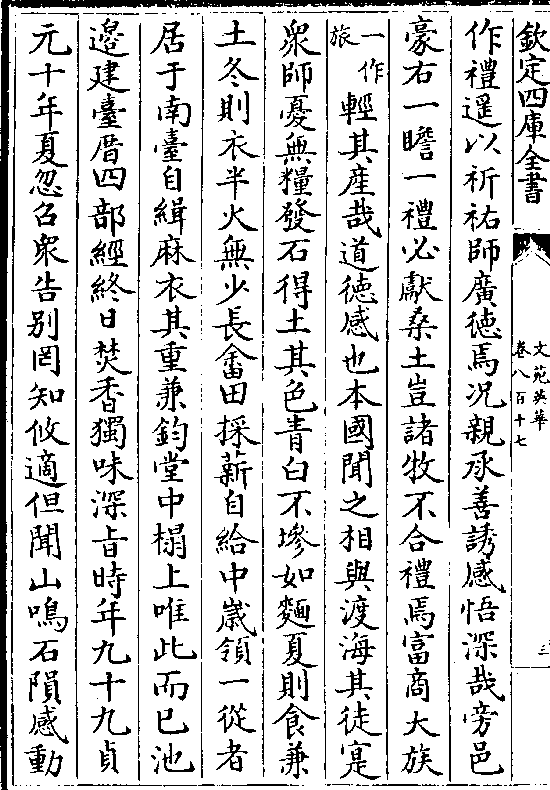 欽定四庫全書
文苑英華
卷八百十七
三
作禮遥以祈祐師廣徳焉况親承善誘感悟深哉旁邑
豪右一瞻一禮必獻桑土豈諸牧不合禮焉富商大族
一作旅輕其産哉道徳感也本國聞之相與渡海其徒寔
衆師憂無糧發石得土其色青白不墋如麵夏則食兼
土冬則衣半火無少長畬田採薪自給中嵗領一從者
居于南臺自緝麻衣其重兼鈞堂中榻上唯此而已池
邉建臺厝四部經終日焚香獨味深㫖時年九十九貞
元十年夏忽召衆告别罔知攸適但聞山鳴石隕感動